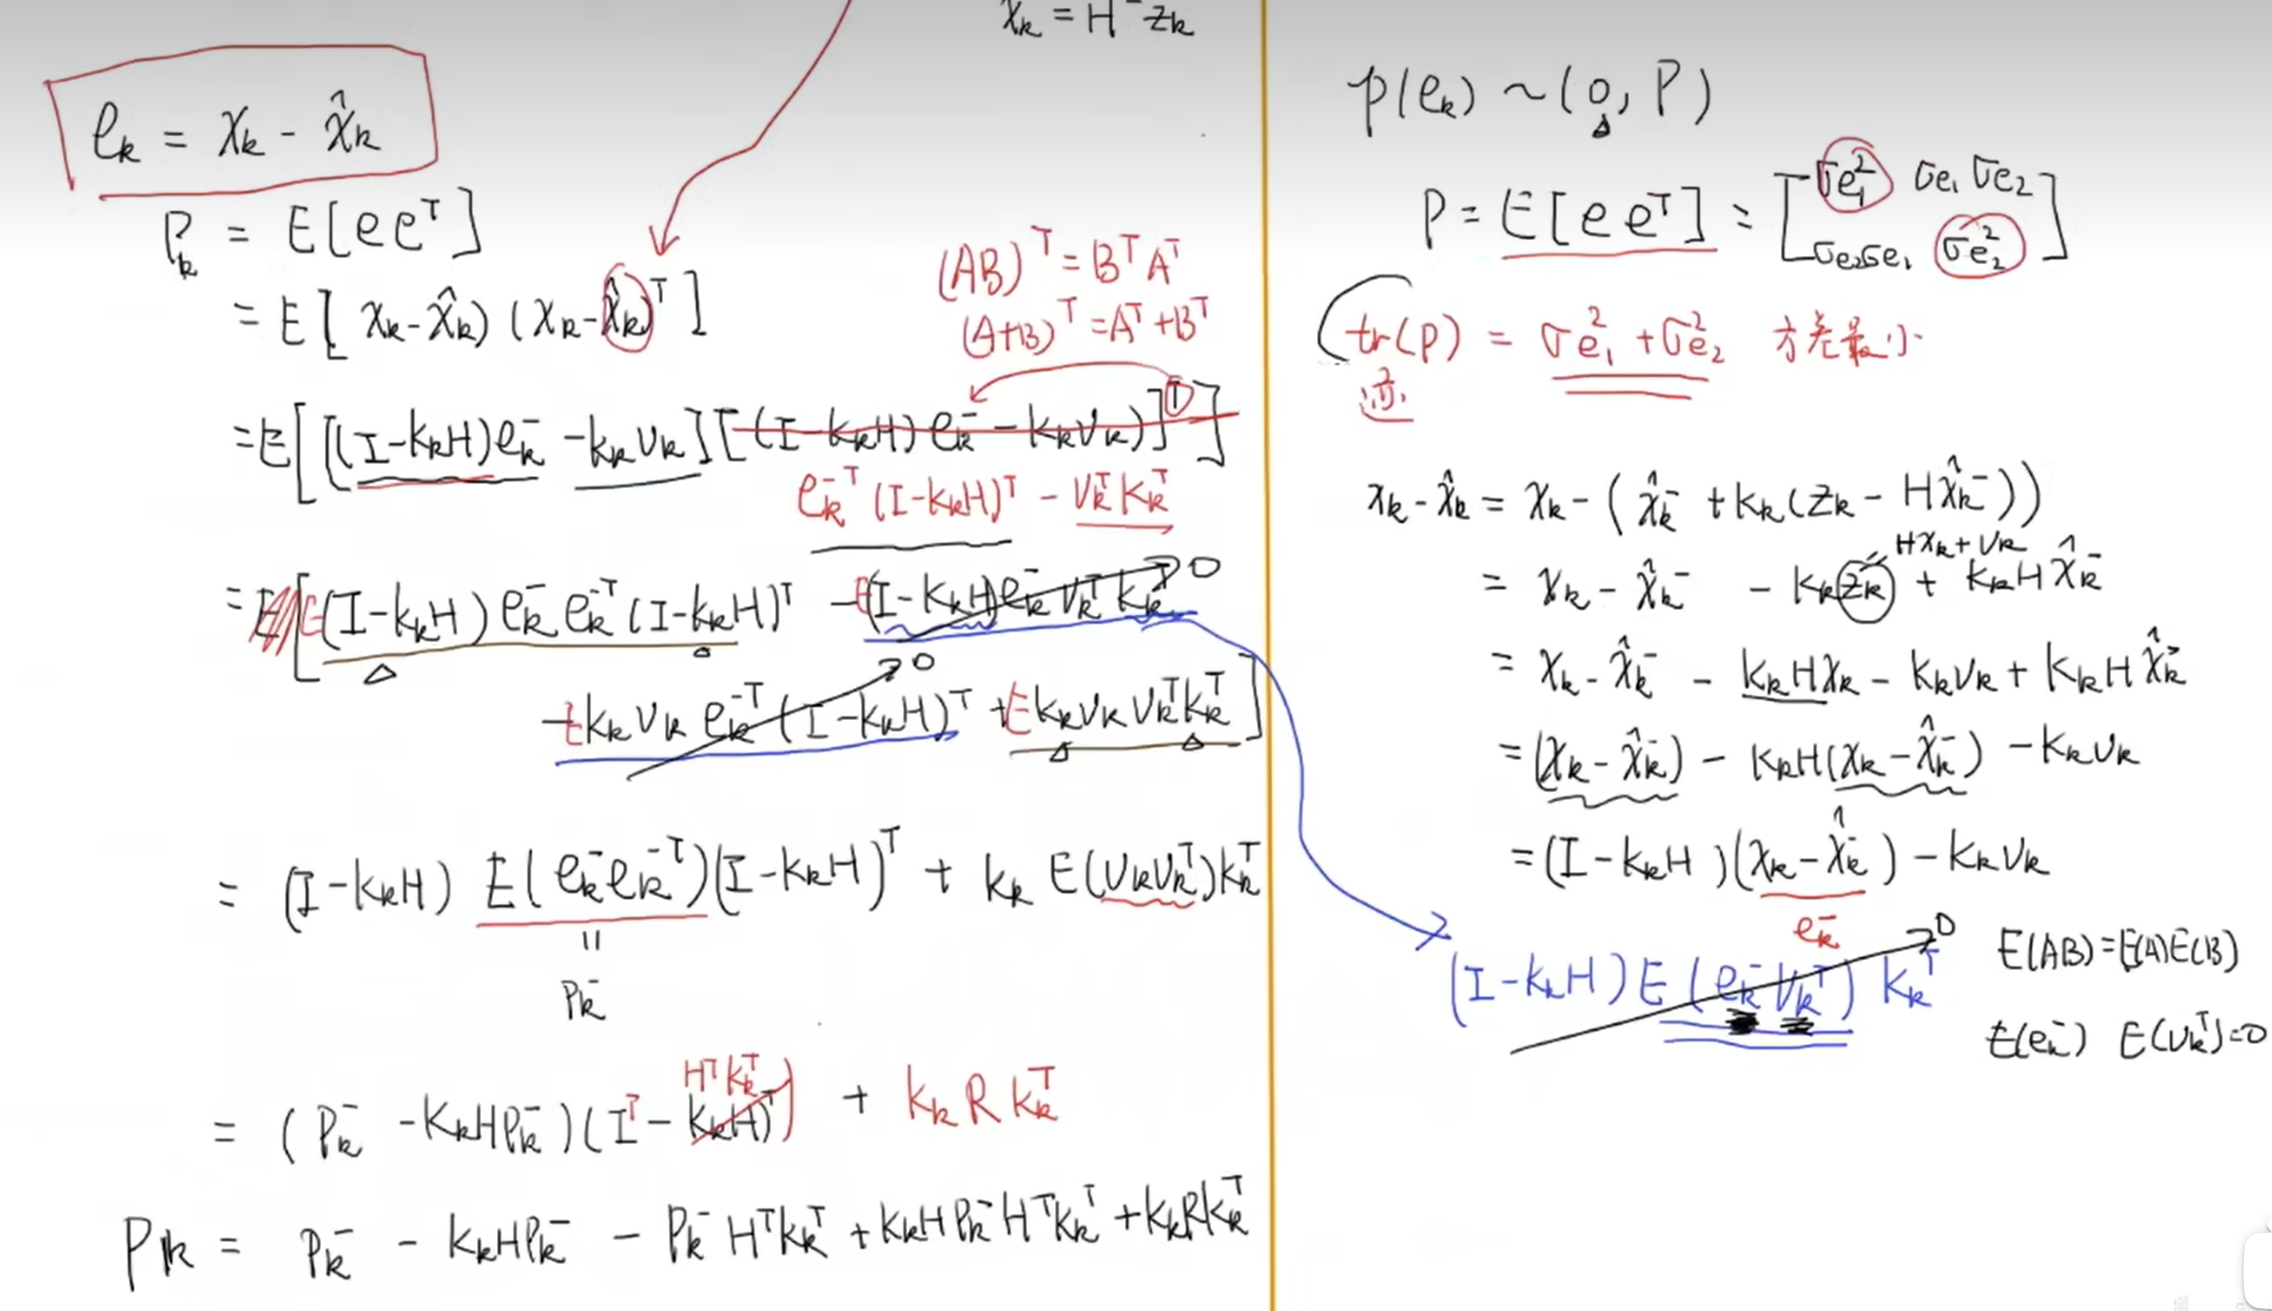 x̂ₖ = H⁻zₖ
eₖ = xₖ - x̂ₖ
Pₖ = E[eeᵀ]
= E[ xₖ-x̂ₖ) (xₖ-x̂ₖ)ᵀ]
(AB)ᵀ = BᵀAᵀ
(A+B)ᵀ = Aᵀ+Bᵀ
=E[[(I-kₖH)eₖ⁻ -kₖvₖ][(I-kₖH)eₖ⁻ - kₖvₖ)]ᵀ]
eₖ⁻ᵀ(I-kₖH)ᵀ - vₖᵀKₖᵀ
= E[E(I-kₖH)eₖ⁻eₖ⁻ᵀ(I-kₖH)ᵀ -E(I-kₖH)eₖ⁻vₖᵀkₖᵀ → 0
→ 0
-Ekₖvₖeₖ⁻ᵀ(I-kₖH)ᵀ +Ekₖvₖvₖᵀkₖᵀ]
= (I-kₖH) E(eₖ⁻eₖ⁻ᵀ)(I-kₖH)ᵀ + kₖ E(vₖvₖᵀ)kₖᵀ
=
Pₖ⁻
HᵀKₖᵀ
= (Pₖ⁻ -KₖHPₖ⁻)(Iᵀ- kₖH)ᵀ) + kₖRkₖᵀ
Pₖ = Pₖ⁻ - KₖHPₖ⁻ - Pₖ⁻HᵀKₖᵀ + KₖHPₖ⁻HᵀKₖᵀ + KₖRKₖᵀ
p(eₖ) ~ (0, P)
P = E[eeᵀ] = [σe₁² σe₁σe₂
σe₂σe₁ σe₂²]
tr(P) = σe₁² + σe₂² 方差最小
迹
xₖ-x̂ₖ = xₖ-(x̂ₖ⁻ + Kₖ(zₖ- Hx̂ₖ⁻))
Hxₖ+vₖ
= xₖ- x̂ₖ⁻ - Kₖzₖ + KₖHx̂ₖ⁻
= xₖ- x̂ₖ⁻ - KₖHxₖ - Kₖvₖ + KₖHx̂ₖ⁻
=(xₖ- x̂ₖ⁻) - KₖH(xₖ-x̂ₖ⁻) -Kₖvₖ
=(I-KₖH)(xₖ-x̂ₖ⁻) - Kₖvₖ
eₖ⁻
→ 0
(I-kₖH)E(eₖ⁻vₖᵀ)kₖᵀ
E(AB)=E(A)E(B)
E(eₖ⁻) E(vₖᵀ)=0